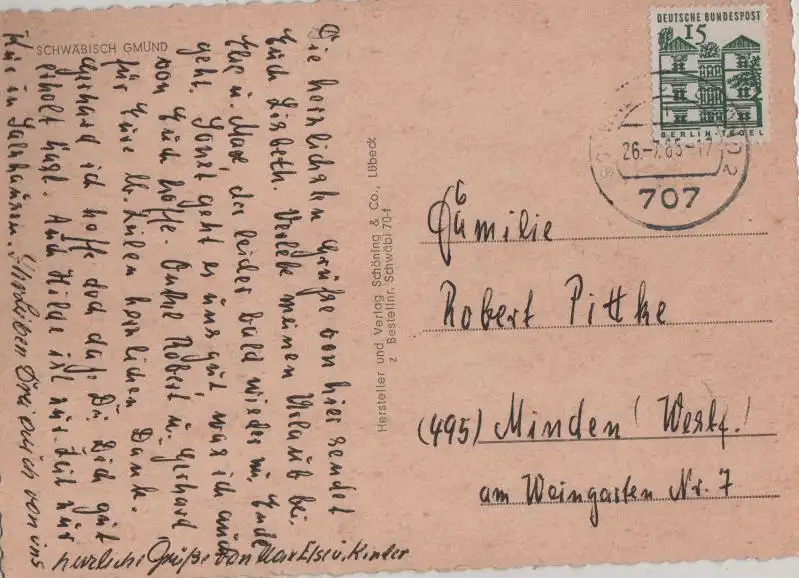 SCHWÄBISCH GMÜND
Die herzlichsten Grüße von hier sendet
Euch Lisbeth. Verlebe meinen Urlaub bei
Else u. Max, der leider bald wieder zu Ende
geht. Sonst geht es uns gut, was ich auch
von Euch hoffe. Onkel Robert u. Gerhard
für Eure lb. Zeilen herzlichen Dank.
Gerhard ich hoffe doch daß Du Dich gut
erholt hast. Auch Hilde ist zur Zeit zur
Kur in Salzhausen. Ihr lieben Drei auch von uns
herzliche Grüße von Max Else u. Kinder
Hersteller und Verlag Schöning & Co., Lübeck
z Bestellnr. Schwäbi 70-f
DEUTSCHE BUNDESPOST
15
BERLIN-TEGEL
26.-7.65-17
707
Familie
Robert Pittke
(495) Minden (Westf.)
am Weingarten Nr. 7